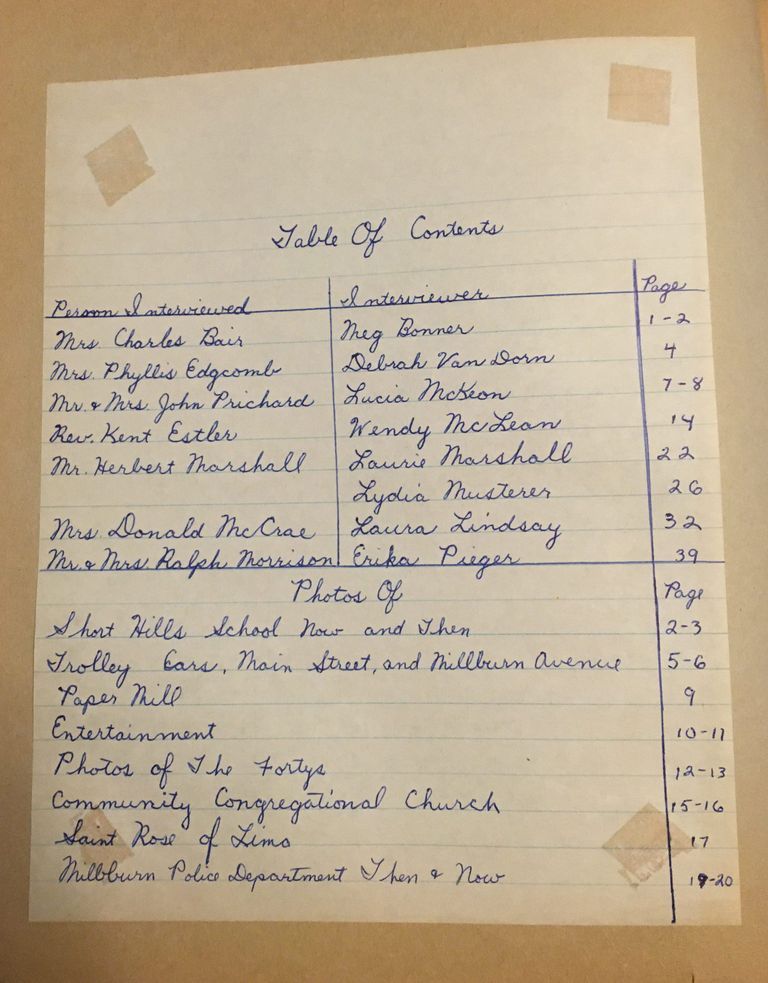 Table Of Contents
Person Interviewed Interviewer Page
Mrs. Charles Bair Meg Bonner 1-2
Mrs. Phyllis Edgcomb Debrah Van Dorn 4
Mr. & Mrs. John Prichard Lucia McKeon 7-8
Rev. Kent Estler Wendy McLean 14
Mr. Herbert Marshall Laurie Marshall 22
Lydia Musterer 26
Mrs. Donald McCrae Laura Lindsay 32
Mr. & Mrs Ralph Morrison Erika Pieger 39
Photos Of Page
Short Hills School Now and Then 2-3
Trolley Cars, Main Street, and Millburn Avenue 5-6
Paper Mill 9
Entertainment 10-11
Photos of The Fortys 12-13
Community Congregational Church 15-16
Saint Rose of Lima 17
Millburn Police Department Then & Now 19-20